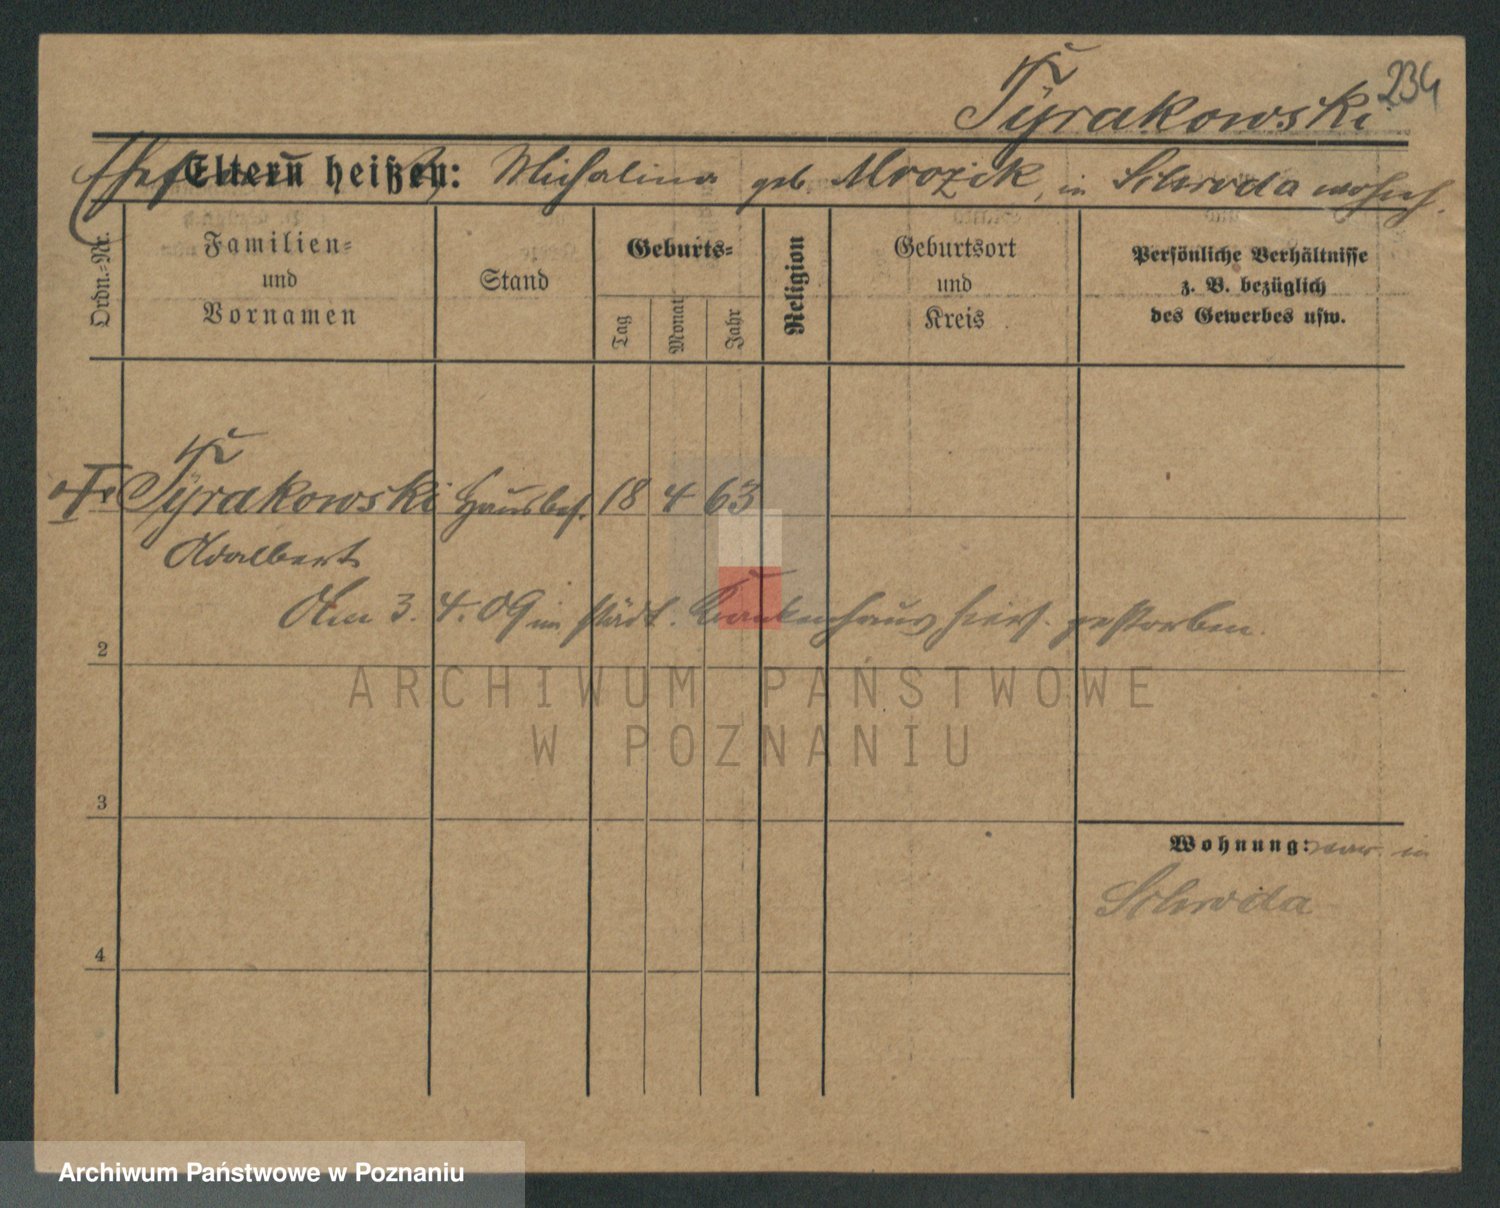 234
Tyrakowski
Ehefrau
Eltern heißen: Michalina geb. Mrozik, in Schroda wohnh.
Ordn.-Nr.
Familien-
und
Vornamen
Stand
Geburts-
Tag
Monat
Jahr
Religion
Geburtsort
und
Kreis
Persönliche Verhältnisse
z. B. bezüglich
des Gewerbes usw.
Tyrakowski Hausbes. 18 4 63
Adalbert
Am 3. 4. 09 im städt. Krankenhaus hies. gestorben.
2
ARCHIWUM PAŃSTWOWE
W POZNANIU
3
Wohnung: war in
Schroda
4
Archiwum Państwowe w Poznaniu